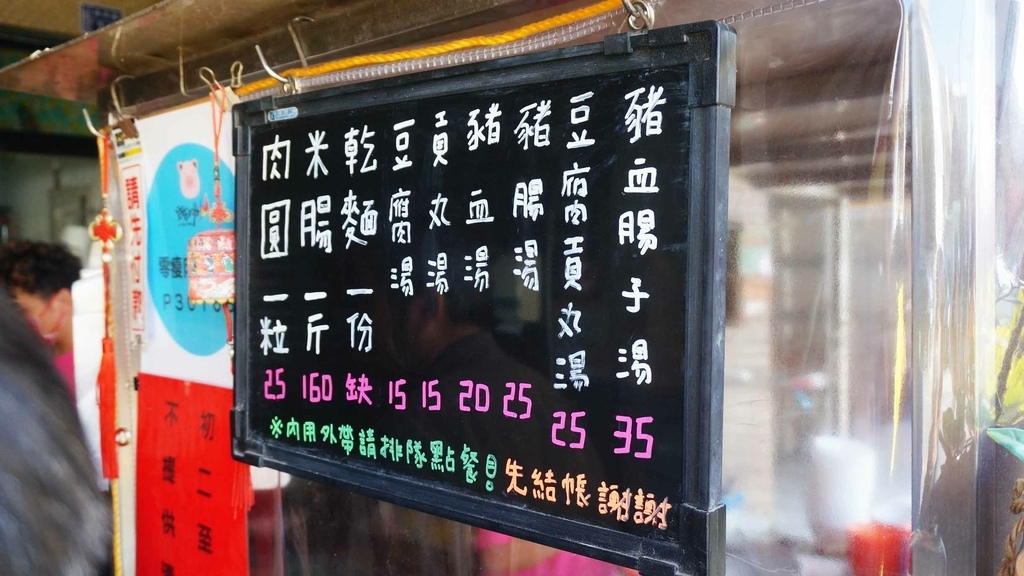 豬血腸子湯 35
豆腐貢丸湯 25
豬腸湯 25
豬血湯 20
貢丸湯 15
豆腐湯 15
乾麵一份 缺
米腸一斤 160
肉圓一粒 25
※內用外帶請排隊點餐!
先結帳謝謝
請先
零瘦
初二至
不